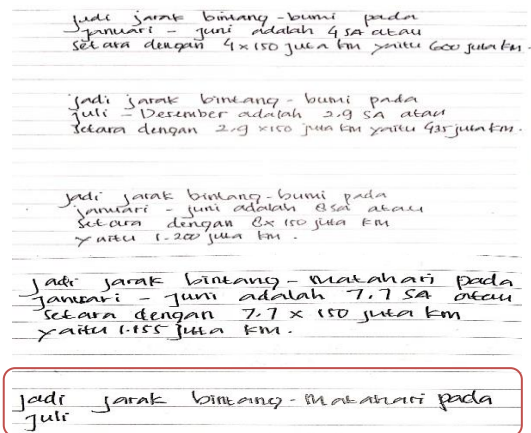 jadi jarak bintang - bumi pada
januari - juni adalah 4 SA atau
setara dengan 4 x 150 juta km yaitu 600 juta km.
jadi jarak bintang - bumi pada
juli - Desember adalah 2.9 SA atau
setara dengan 2.9 x 150 juta km yaitu 435 juta km.
jadi jarak bintang - bumi pada
januari - juni adalah 8 SA atau
setara dengan 8 x 150 juta km
yaitu 1.200 juta km.
jadi jarak bintang - matahari pada
januari - juni adalah 7.7 SA atau
setara dengan 7.7 x 150 juta km
yaitu 1.155 juta km.
jadi jarak bintang - matahari pada
juli